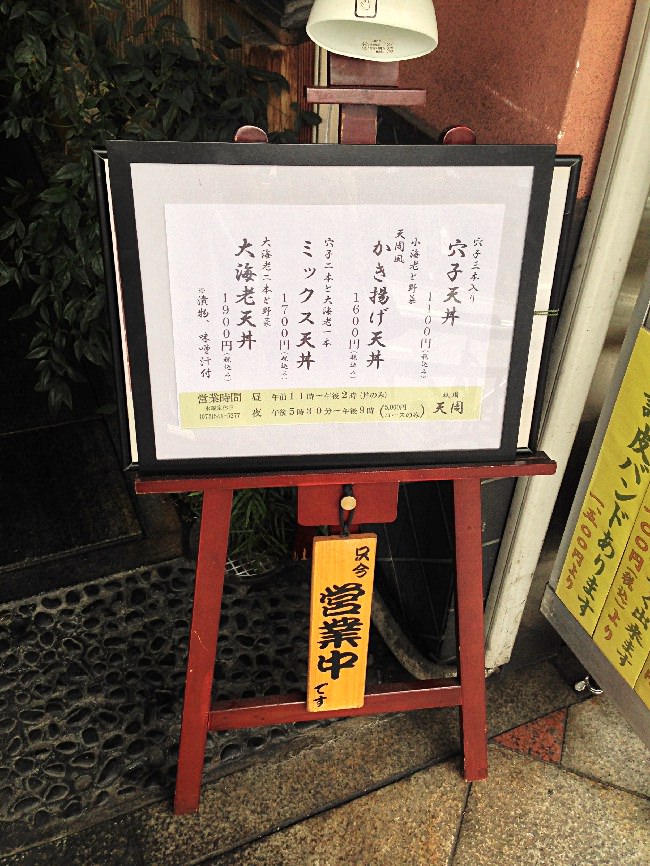 穴子三本入り
穴子天丼
1100円(税込み)
小海老と野菜
天周風
かき揚げ天丼
1600円(税込み)
穴子二本と大海老一本
ミックス天丼
1700円(税込み)
大海老二本と野菜
大海老天丼
1900円(税込み)
※漬物 味噌汁付
営業時間 昼 午前11時~午後2時(丼のみ)
水曜定休日
(075)541-5277
夜 午後5時30分~午後9時(5,000円コースのみ)
祇園
天周
只今
営業中
です
皮バンドあります
一五〇〇より
(税込)より
出来ます